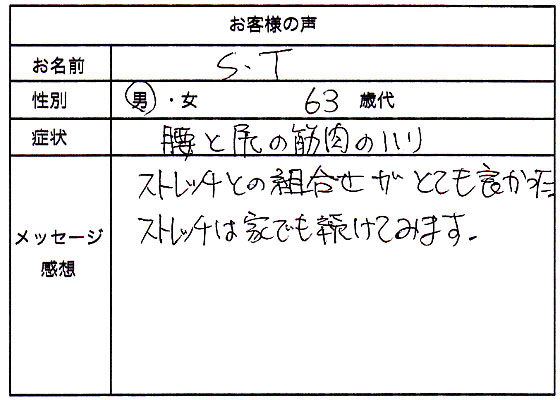 お客様の声
お名前 S.T
性別 男・女 63 歳代
症状 腰と尻の筋肉のハリ
メッセージ
感想
ストレッチとの組合せがとても良かった
ストレッチは家でも続けてみます.